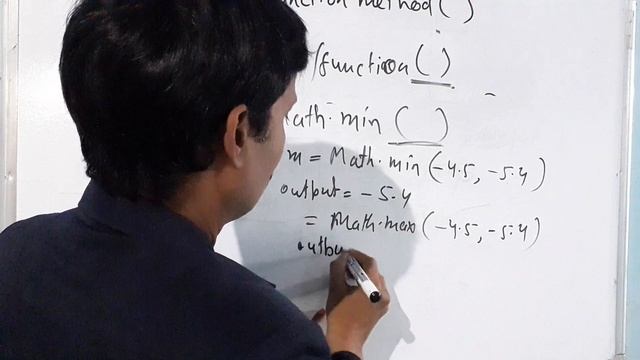 nction method ( )
/function ( )
ath. min ( )
m = Math. min (-4.5, -5.4)
output = -5.4
= Math. max (-4.5, -5.4)
outpu